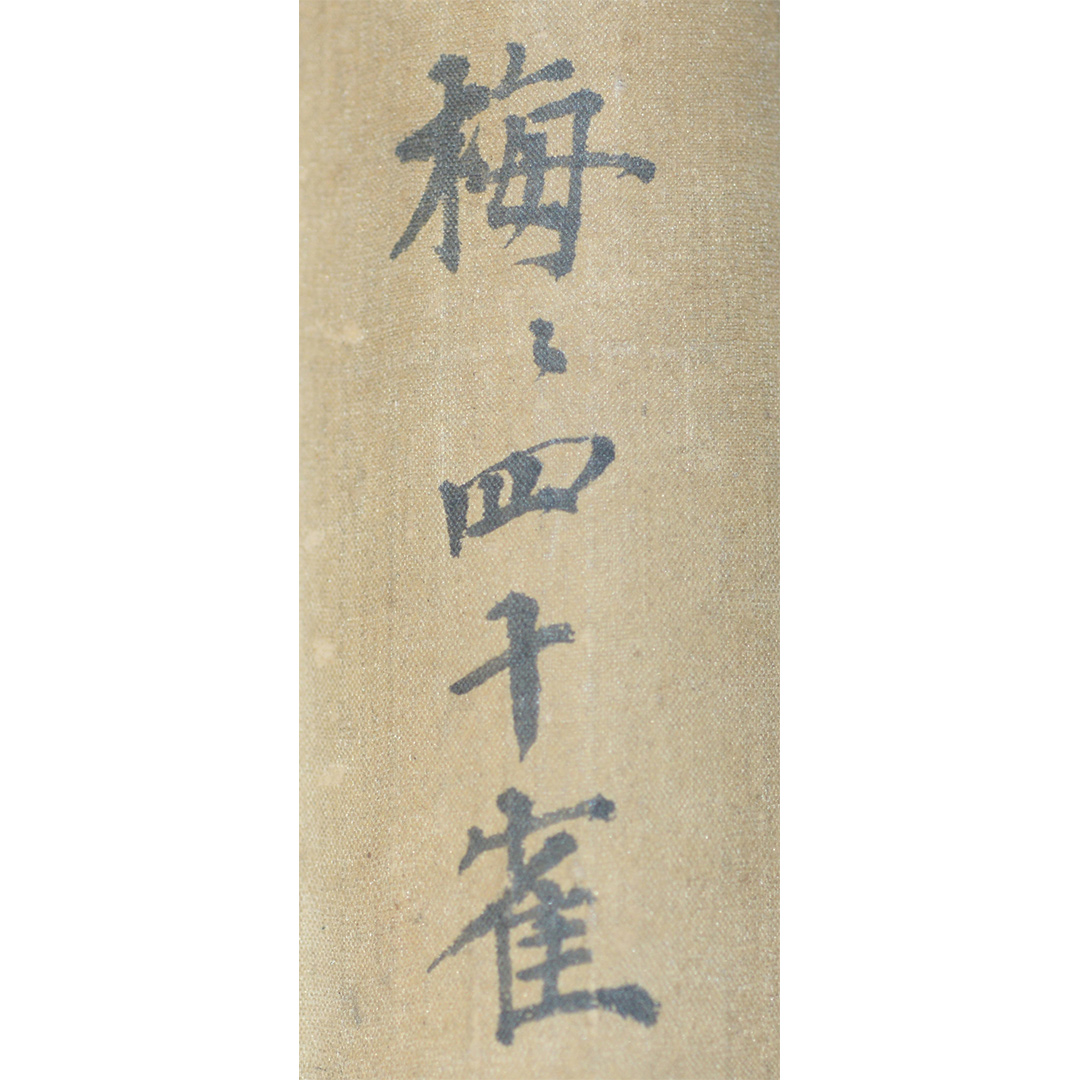 梅ニ四十雀